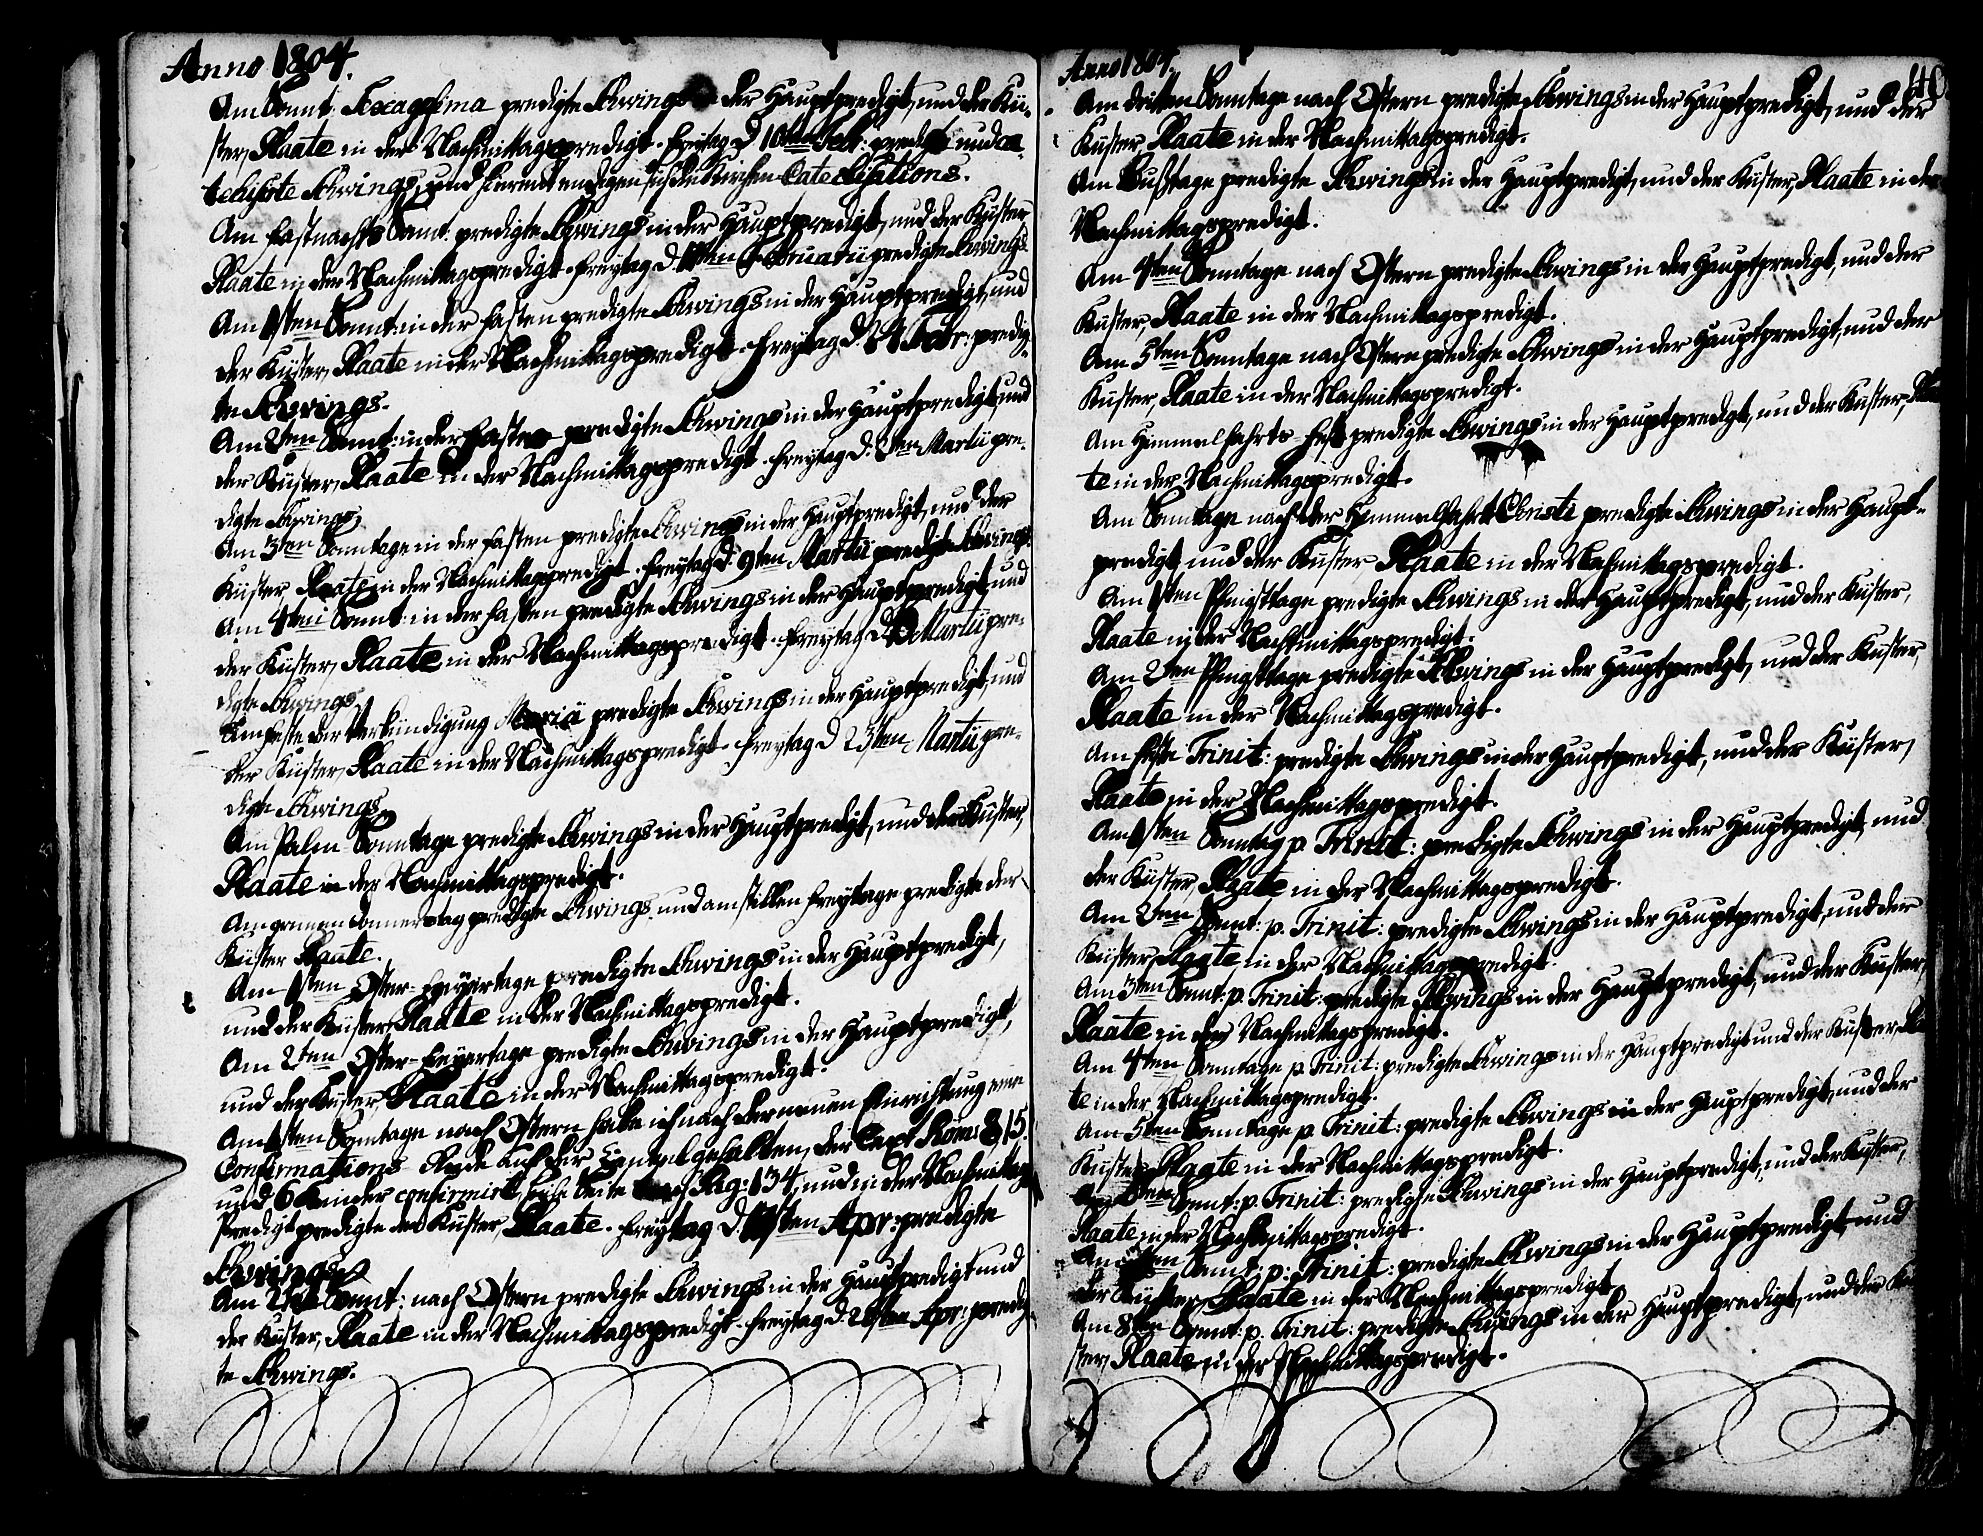 Anno 1804.
Am Sonnt: Sexagesima predigte Schwings in der Hauptpredigt, und der Kü-
ster, Plaate in der Nachmittagspredigt. Freytag d. 10ten Febr: predigte und ca-
techisirte Schwings, und hiermit endigen sich die Kirchen Catechisations.
Am Fastnachts Sonnt. predigte Schwings in der Hauptpredigt, und der Küster
Plaate in der Nachmittagspredigt. Freytag d. Februarii predigte Schwings
Am 1sten Sonnt: in der Fasten predigte Schwings in der Hauptpredigt, und
der Küster, Plaate in der Nachmittagspredigt. Freytag d. 24 Febr: predig-
te Schwings.
Am 2ten Sonnt: in der Fasten predigte Schwings in der Hauptpredigt, und
der Küster, Plaate in der Nachmittagspredigt. Freytag d. 2ten Martii pre-
digte Schwings.
Am 3ten Sonntage in der Fasten predigte Schwings in der Hauptpredigt, und der
Küster, Plaate in der Nachmittagspredigt. Freytag d. 9ten Martii predigte Schwings.
Am 4ten Sonnt: in der Fasten predigte Schwings in der Hauptpredigt, und
der Küster, Plaate in der Nachmittagspredigt. Freytag d. Martii pre-
digte Schwings.
Am Feste der Verkündigung Mariä predigte Schwings in der Hauptpredigt, und
der Küster, Plaate in der Nachmittagspredigt. Freytag d. 23ten Martii pre-
digte Schwings.
Am Palm-Sonntage predigte Schwings in der Hauptpredigt, und der Küster,
Plaate in der Nachmittagspredigt.
Am grünen Donnerstag predigte Schwings. und am stillen Freytage predigte der
Küster Plaate.
Am 1sten Oster-Feyertage predigte Schwings in der Hauptpredigt,
und der Küster, Plaate in der Nachmittagspredigt.
Am 2ten Oster-Feyertage predigte Schwings in der Hauptpredigt,
und der Küster, Plaate in der Nachmittagspredigt.
Am 1sten Sonntage nach Ostern habe ich nach der neuen Einrichtung eine
Confirmations-Rede auf der Cantzel gehalten, der Text Rom: 8 15.
und 6 Kinder confirmirt, siehe Seite Pag: 134, und in der Nachmittags
Predigt predigte der Küster, Plaate. Freytag d. Apr: predigte
Schwings.
Am 2ten Sonnt: nach Ostern predigte Schwings in der Hauptpredigt und
der Küster, Plaate in der Nachmittagspredigt. Freytag d. Apr: predig-
te Schwings.
Anno 1804.
40
Am dritten Sonntage nach Ostern predigte Schwings in der Hauptpredigt, und der
Küster, Plaate in der Nachmittagspredigt.
Am Bußtage predigte Schwings in der Hauptpredigt, und der Küster, Plaate in der
Nachmittagspredigt.
Am 4ten Sonntage nach Ostern predigte Schwings in der Hauptpredigt, und der
Küster, Plaate in der Nachmittagspredigt.
Am 5ten Sonntage nach Ostern predigte Schwings in der Hauptpredigt, und der
Küster, Plaate in der Nachmittagspredigt.
Am Himmelfahrts-Fest predigte Schwings in der Hauptpredigt, und der Küster, Plaa-
te in der Nachmittagspredigt.
Am Sonntage nach der Himmelfahrt Christi predigte Schwings in der Haupt-
predigt, und der Küster, Plaate in der Nachmittagspredigt.
Am 1sten Pfingsttage predigte Schwings in der Hauptpredigt, und der Küster,
Plaate in der Nachmittagspredigt.
Am 2ten Pfingsttage predigte Schwings in der Hauptpredigt, und der Küster,
Plaate in der Nachmittagspredigt.
Am Feste Trinit: predigte Schwings in der Hauptpredigt, und der Küster,
Plaate in der Nachmittagspredigt.
Am 1sten Sonntag p. Trinit: predigte Schwings in der Hauptpredigt, und
der Küster, Plaate in der Nachmittagspredigt.
Am 2ten Sonnt: p. Trinit: predigte Schwings in der Hauptpredigt, und der
Küster, Plaate in der Nachmittagspredigt.
Am 3ten Sonnt: p. Trinit: predigte Schwings in der Hauptpredigt, und der Küster,
Plaate in der Nachmittagspredigt.
Am 4ten Sonntage p Trinit: predigte Schwings in der Hauptpredigt und der Küster, Plaa-
te in der Nachmittagspredigt.
Am 5ten Sonntage p. Trinit: predigte Schwings in der Hauptpredigt, und der
Küster, Plaate in der Nachmittagspredigt.
Am Sonnt: p. Trinit: predigte Schwings in der Hauptpredigt, und der Küster,
Plaate in der Nachmittagspredigt.
Am Sonnt: p. Trinit: predigte Schwings in der Hauptpredigt und
der Küster, Plaate in der Nachmittagspredigt.
Am 8ten Sonnt: p. Trinit: predigte Schwings in der Hauptpredigt, und der Kü-
ster, Plaate in der Nachmittagspredigt.